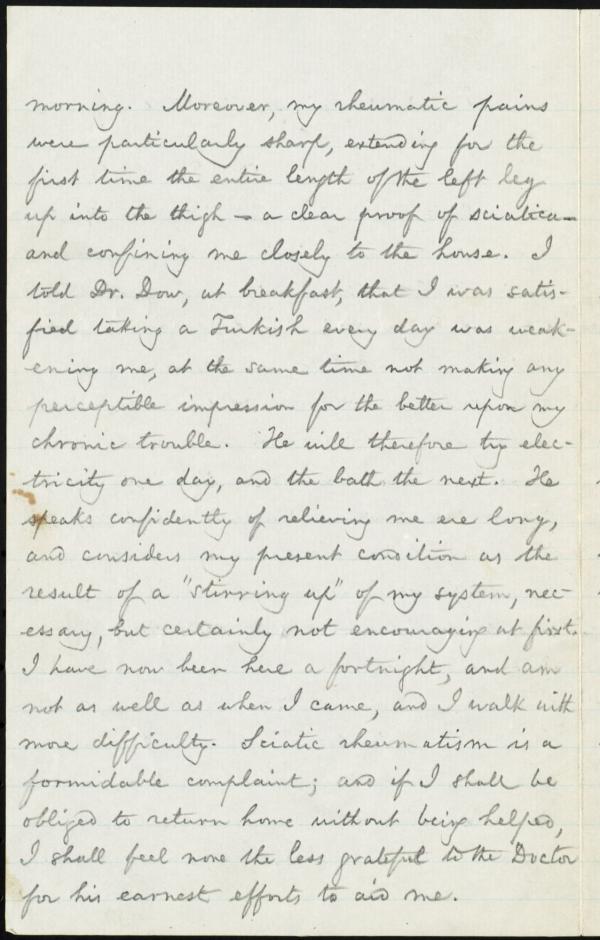 morning. Moreover, my rheumatic pains
were particularly sharp, extending for the
first time the entire length of the left leg
up into the thigh — a clear proof of sciatica —
and confining me closely to the house. I
told Dr. Dow, at breakfast, that I was satis-
fied taking a Turkish every day was weak-
ening me, at the same time not making any
perceptible impression for the better upon my
chronic trouble. He will therefore try elec-
tricity one day, and the bath the next. He
speaks confidently of relieving me ere long,
and considers my present condition as the
result of a "stirring up" of my system, nec-
essary, but certainly not encouraging at first.
I have now been here a fortnight, and am
not as well as when I came, and I walk with
more difficulty. Sciatic rheumatism is a
formidable complaint; and if I shall be
obliged to return home without being helped,
I shall feel none the less grateful to the Doctor
for his earnest efforts to aid me.